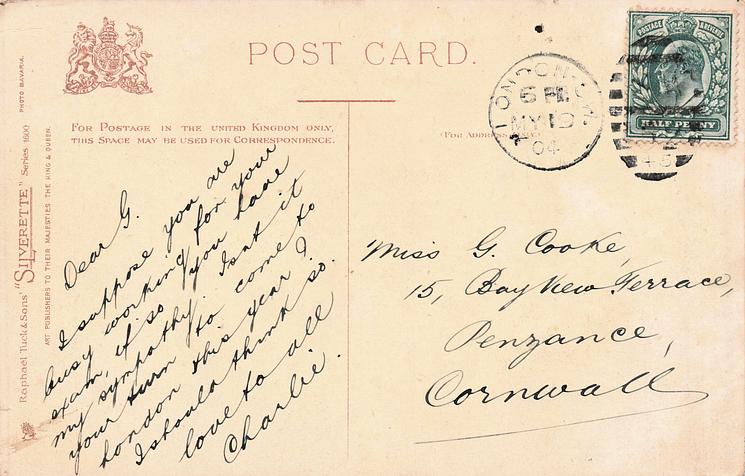 PHOTO BAVARIA.
Raphael Tuck & Sons' "SILVERETTE" Series 1600
ART PUBLISHERS TO THEIR MAJESTIES THE KING & QUEEN.
POST CARD.
FOR POSTAGE IN THE UNITED KINGDOM ONLY,
THIS SPACE MAY BE USED FOR CORRESPONDENCE.
(FOR ADDRESS ONLY)
Dear G.
I suppose you are
busy working for your
exam, if so you have
my sympathy. Isnt it
your turn to come to
London this year?
I should think so.
love to all
Charlie.
LONDON
MY 19
04
POSTAGE
HALF PENNY
Miss G. Cooke,
15, Bay View Terrace,
Penzance,
Cornwall